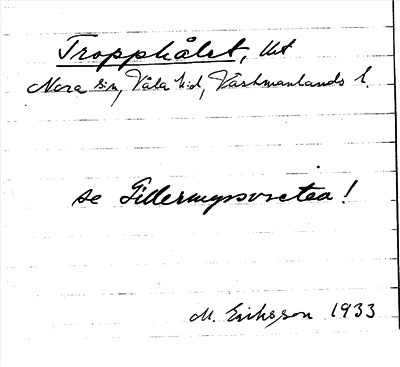 Tropphålet, Ut
Nora sn, Våla hd, Västmanlands l.
se Gillermyrsvretea!
M. Eriksson 1933